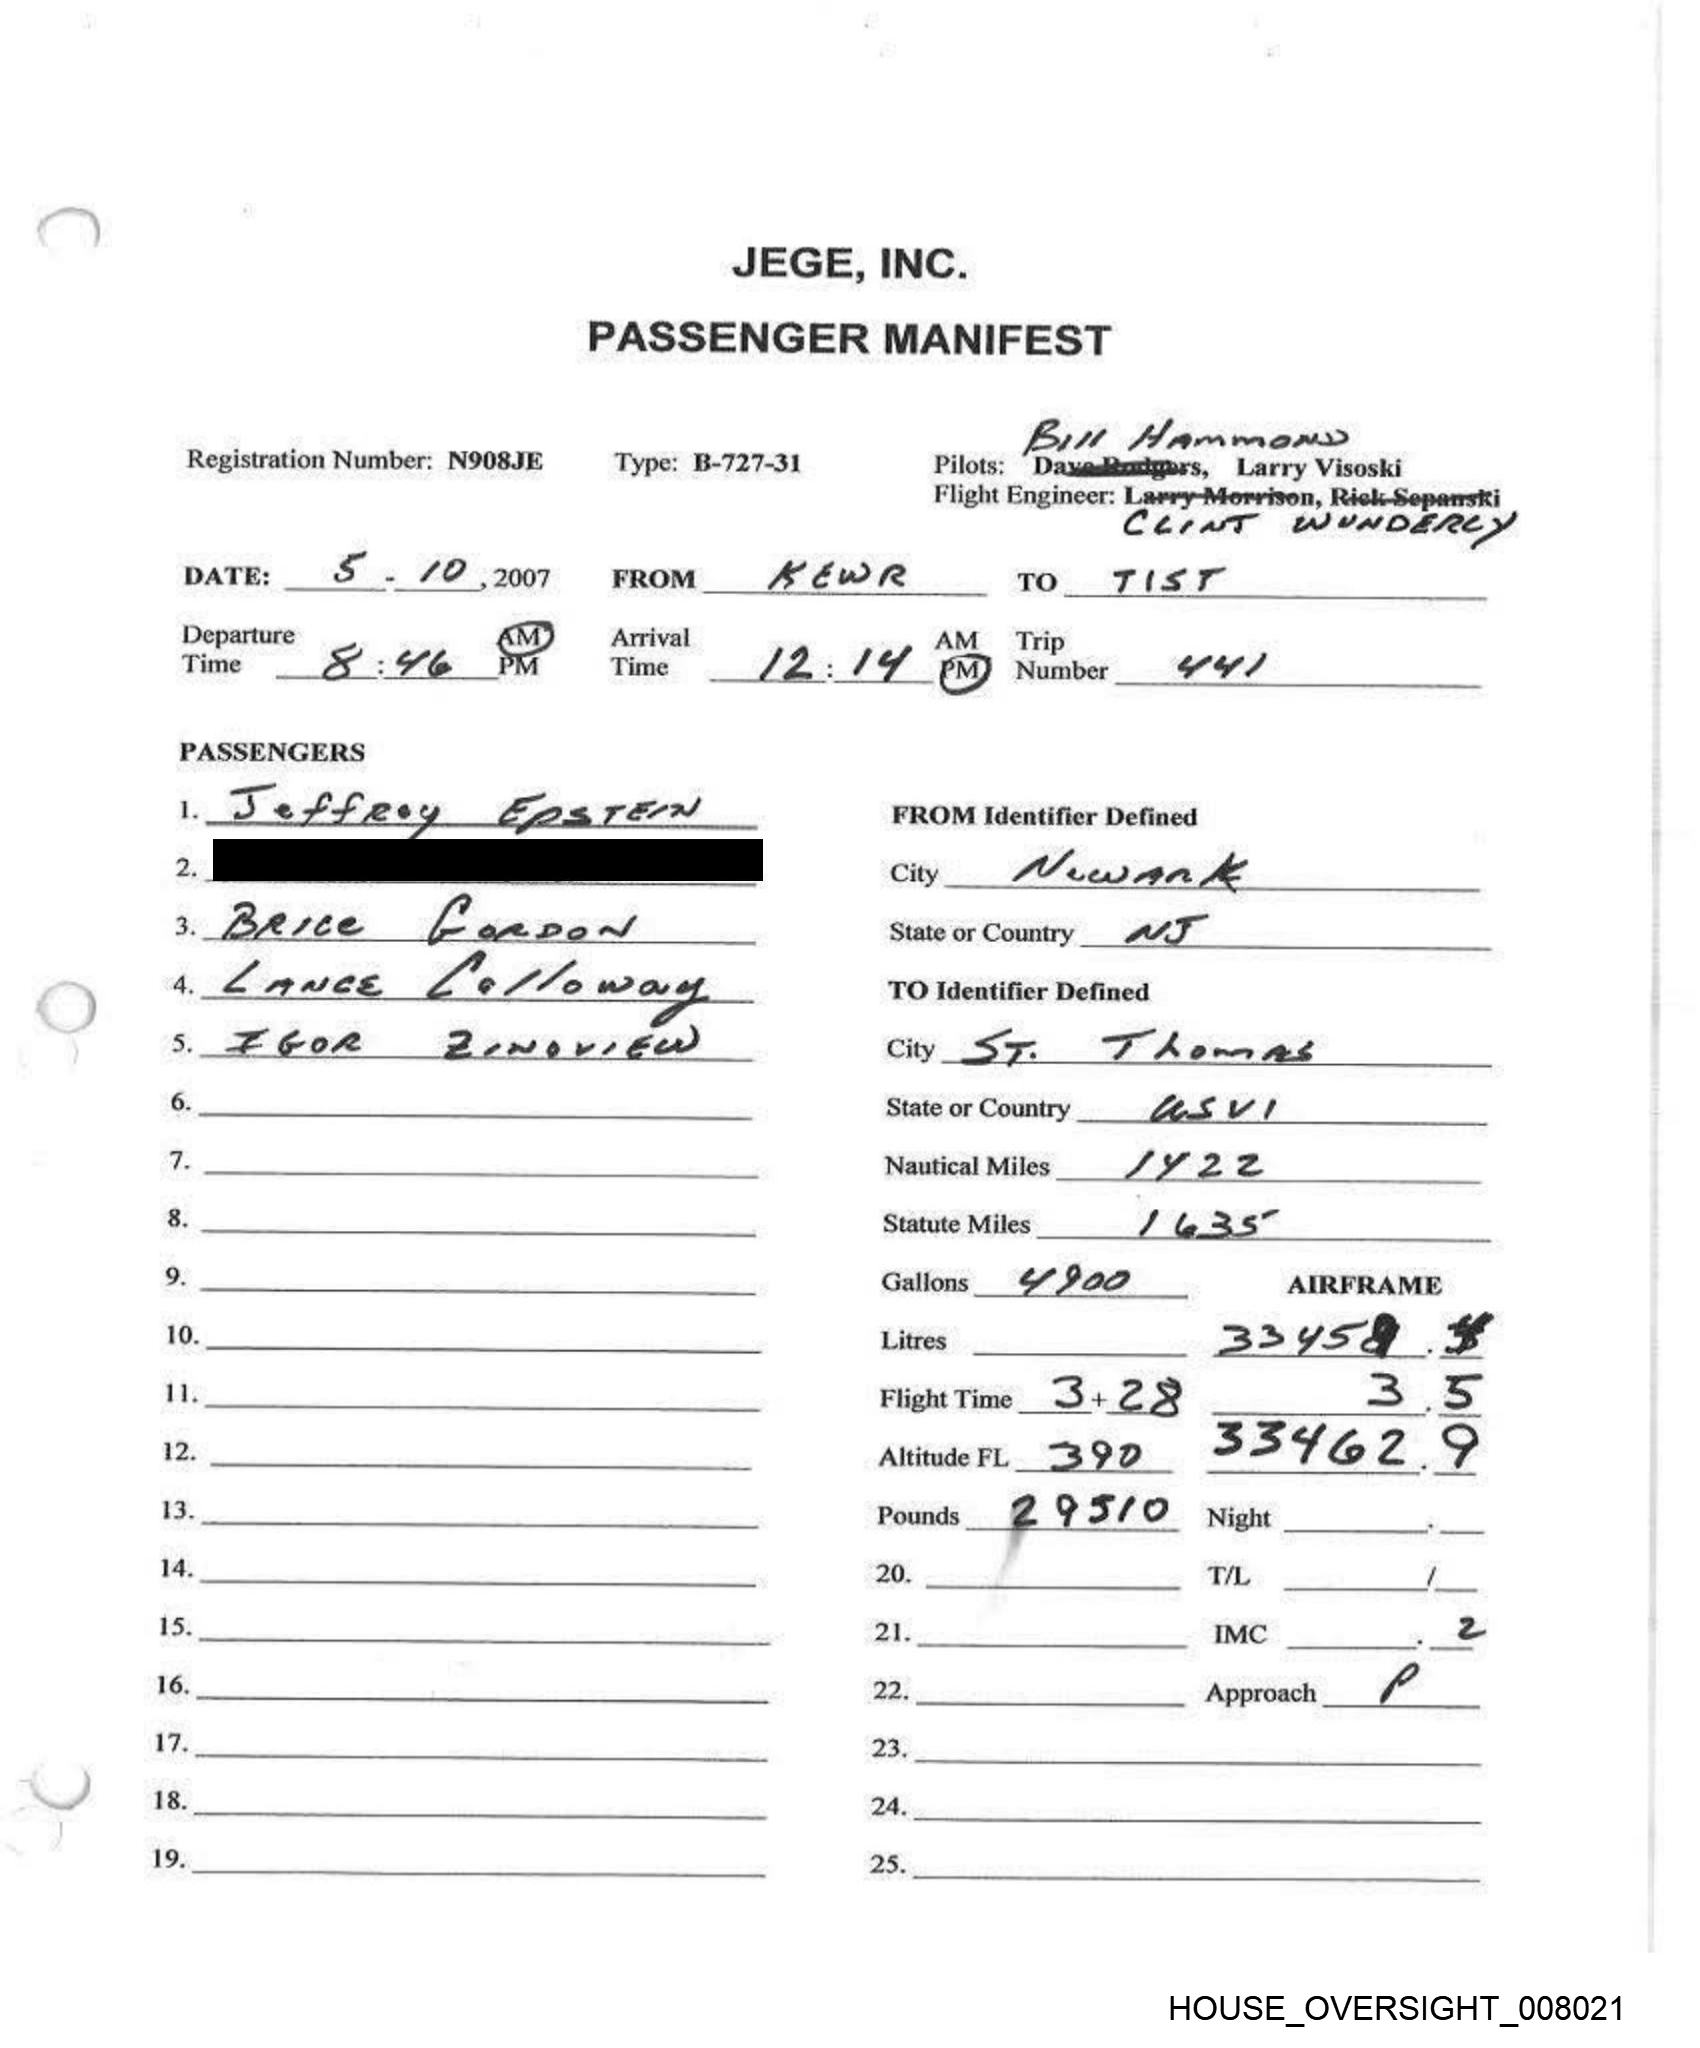 JEGE, INC.
PASSENGER MANIFEST
Bill Hammond
Registration Number: N908JE Type: B-727-31 Pilots: Dave Rodgers, Larry Visoski
Flight Engineer: Larry Morrison, Rick Sepanski
CLINT WUNDERLY
DATE: 5 - 10, 2007 FROM KEWR TO TIST
Departure Time 8:46 AM PM Arrival Time 12:14 AM PM Trip Number 441
PASSENGERS
1. Jeffrey EPSTEIN
FROM Identifier Defined
2.
City Newark
3. BRICE GORDON
State or Country NJ
4. LANCE Calloway
TO Identifier Defined
5. IGOR ZINOVIEW
City ST. Thomas
6.
State or Country USVI
7.
Nautical Miles 1422
8.
Statute Miles 1635
9.
Gallons 4900 AIRFRAME
10.
Litres
11.
Flight Time 3+28 3.5
12.
Altitude FL 390 33462.9
13.
Pounds 29510 Night .
14.
20. T/L /
15.
21. IMC .2
16.
22. Approach P
17.
23.
18.
24.
19.
25.
HOUSE_OVERSIGHT_008021